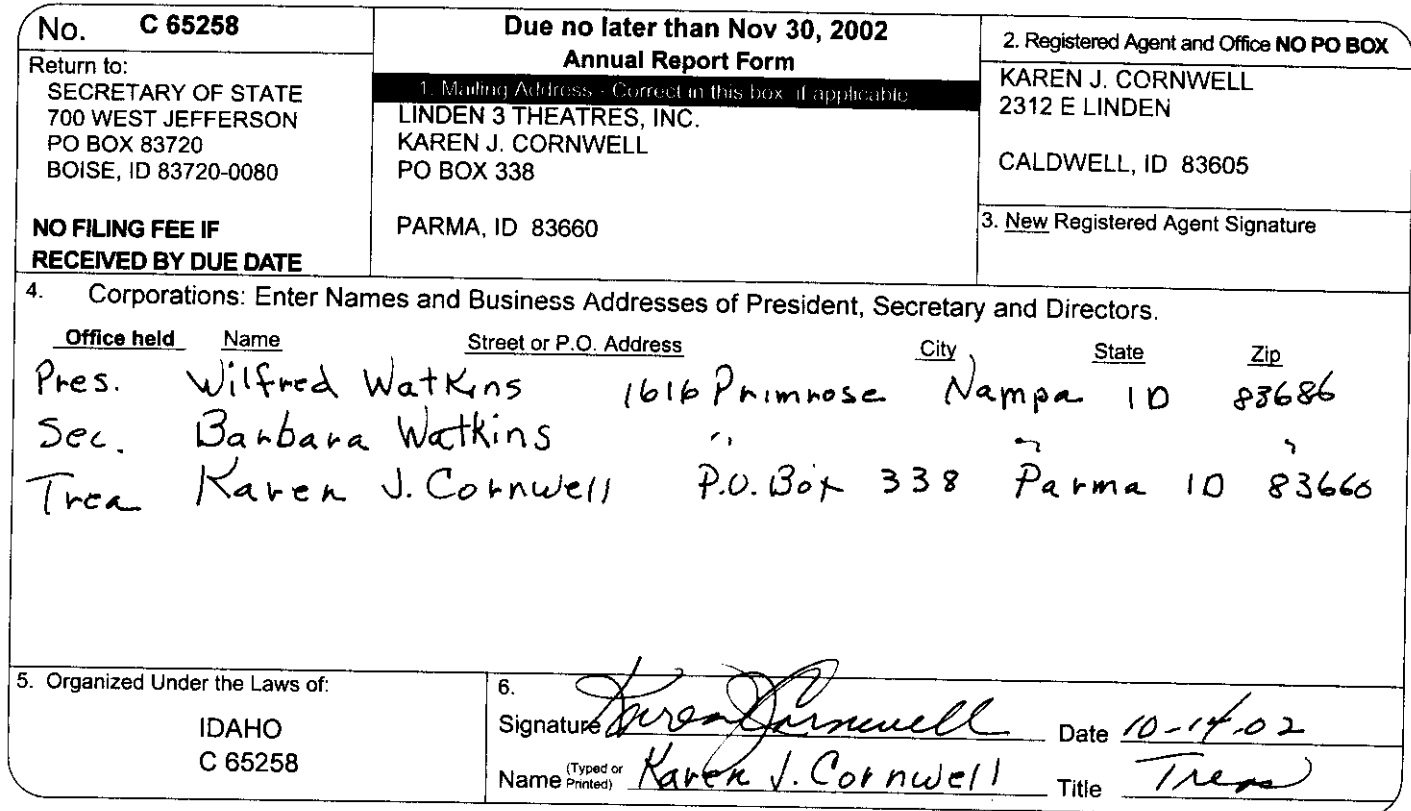 No. C 65258
Return to:
SECRETARY OF STATE
700 WEST JEFFERSON
PO BOX 83720
BOISE, ID 83720-0080
NO FILING FEE IF
RECEIVED BY DUE DATE
Due no later than Nov 30, 2002
Annual Report Form
1. Mailing Address - Correct in this box if applicable
LINDEN 3 THEATRES, INC.
KAREN J. CORNWELL
PO BOX 338
PARMA, ID 83660
2. Registered Agent and Office NO PO BOX
KAREN J. CORNWELL
2312 E LINDEN
CALDWELL, ID 83605
3. New Registered Agent Signature
4. Corporations: Enter Names and Business Addresses of President, Secretary and Directors.
Office held Name Street or P.O. Address City State Zip
Pres. Wilfred Watkins 1616 Primrose Nampa ID 83686
Sec. Barbara Watkins " " "
Trea Karen J. Cornwell P.O. Box 338 Parma ID 83660
5. Organized Under the Laws of:
IDAHO
C 65258
6.
Signature Karen J Cornwell Date 10-14-02
Name (Typed or Printed) Karen J. Cornwell Title Treas